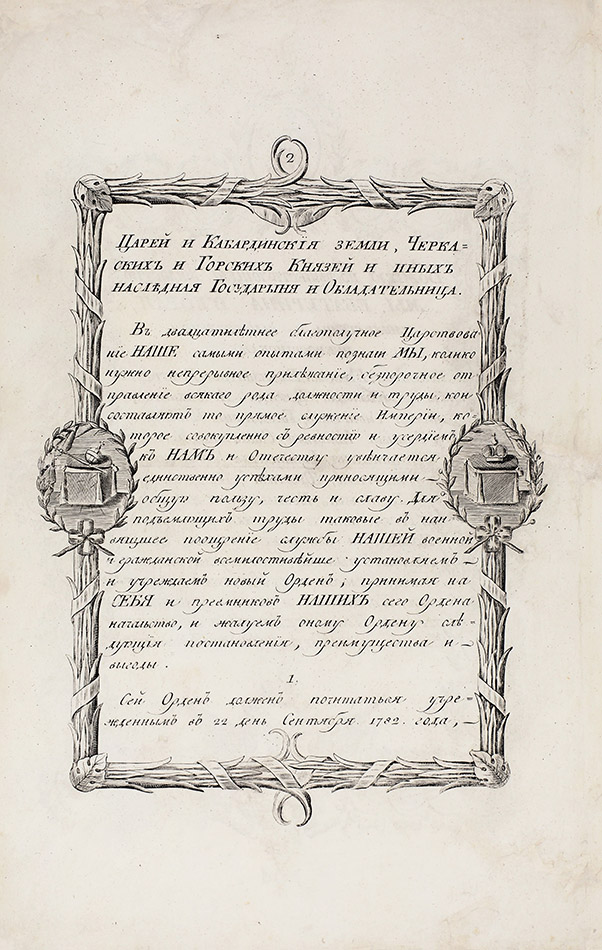 2
Царей и Кабардинскія земли, Черка=
скихъ и Горскихъ Князей и иныхъ
наслѣдная Государыня и Обладательница.
Въ двадцатилѣтнее благополучное Царствова
ніе НАШЕ самыми опытами познали МЫ, колико
нужно непрерывное прилѣжаніе, безпорочное от
правленіе всякаго рода должности и труды, кои
составляютъ то прямое служеніе Имперіи, ко-
торое совокупленно съ ревностію и усердіемъ
къ НАМЪ и Отечеству увѣнчается
единственно успѣхами приносящими —
общую пользу, честь и славу. Для
подъемлющихъ труды таковые въ наи
вящшее поощреніе службы НАШЕЙ военной
и гражданской всемилостивѣйше установляемъ —
и учреждаемъ новый Орденъ; принимая на
СЕБЯ и преемниковъ НАШИХЪ сего Ордена
начальство, и жалуемъ оному Ордену слѣ-
дующія постановленія, преимущества и —
выгоды.
1.
Сей Орденъ долженъ почитаться учре-
жденнымъ въ 22 день Сентября 1782. года, —